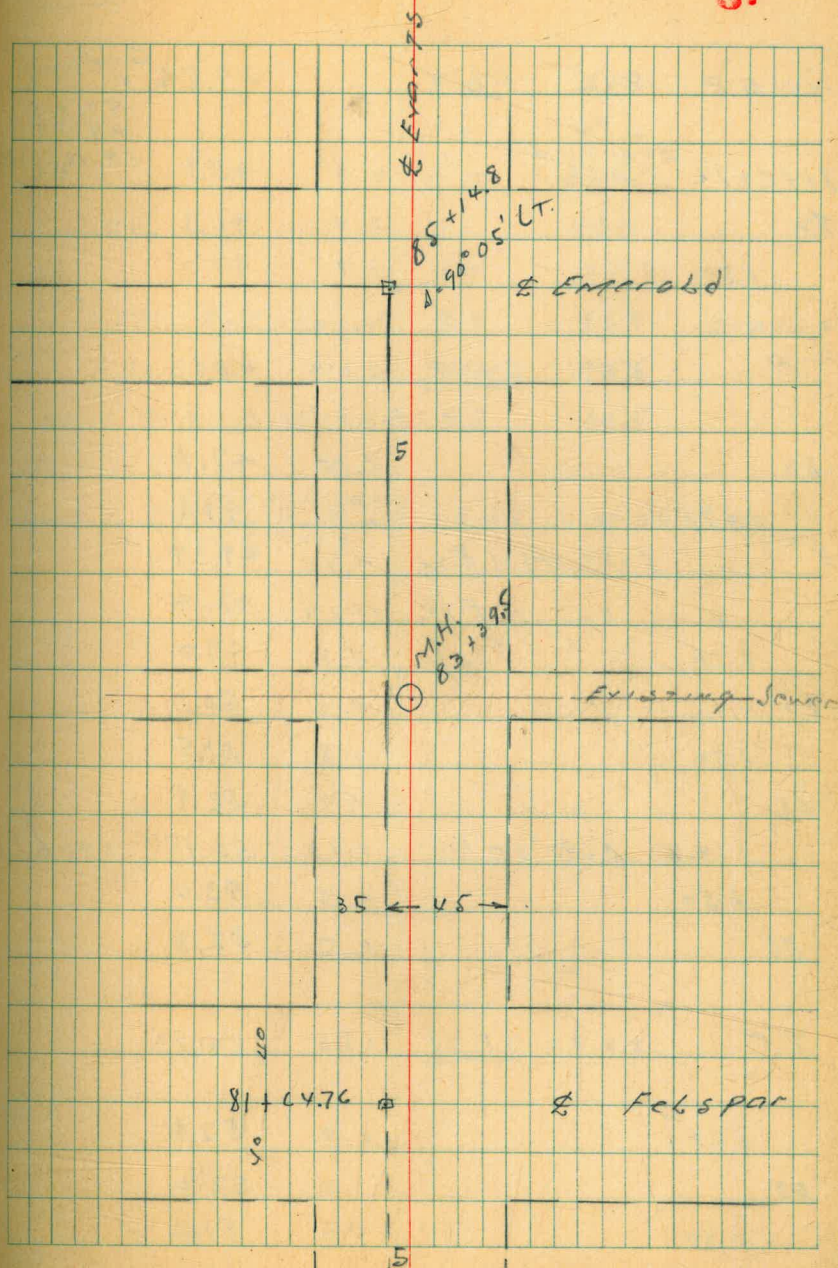 ℄ Evarts
85 + 14.8
Δ. 90° 05' LT.
℄ Emerald
5
M.H.
83 + 39.5
Existing Sewer
35 ← 45 →
40
81 + 64.76
40
℄ Felspar
5